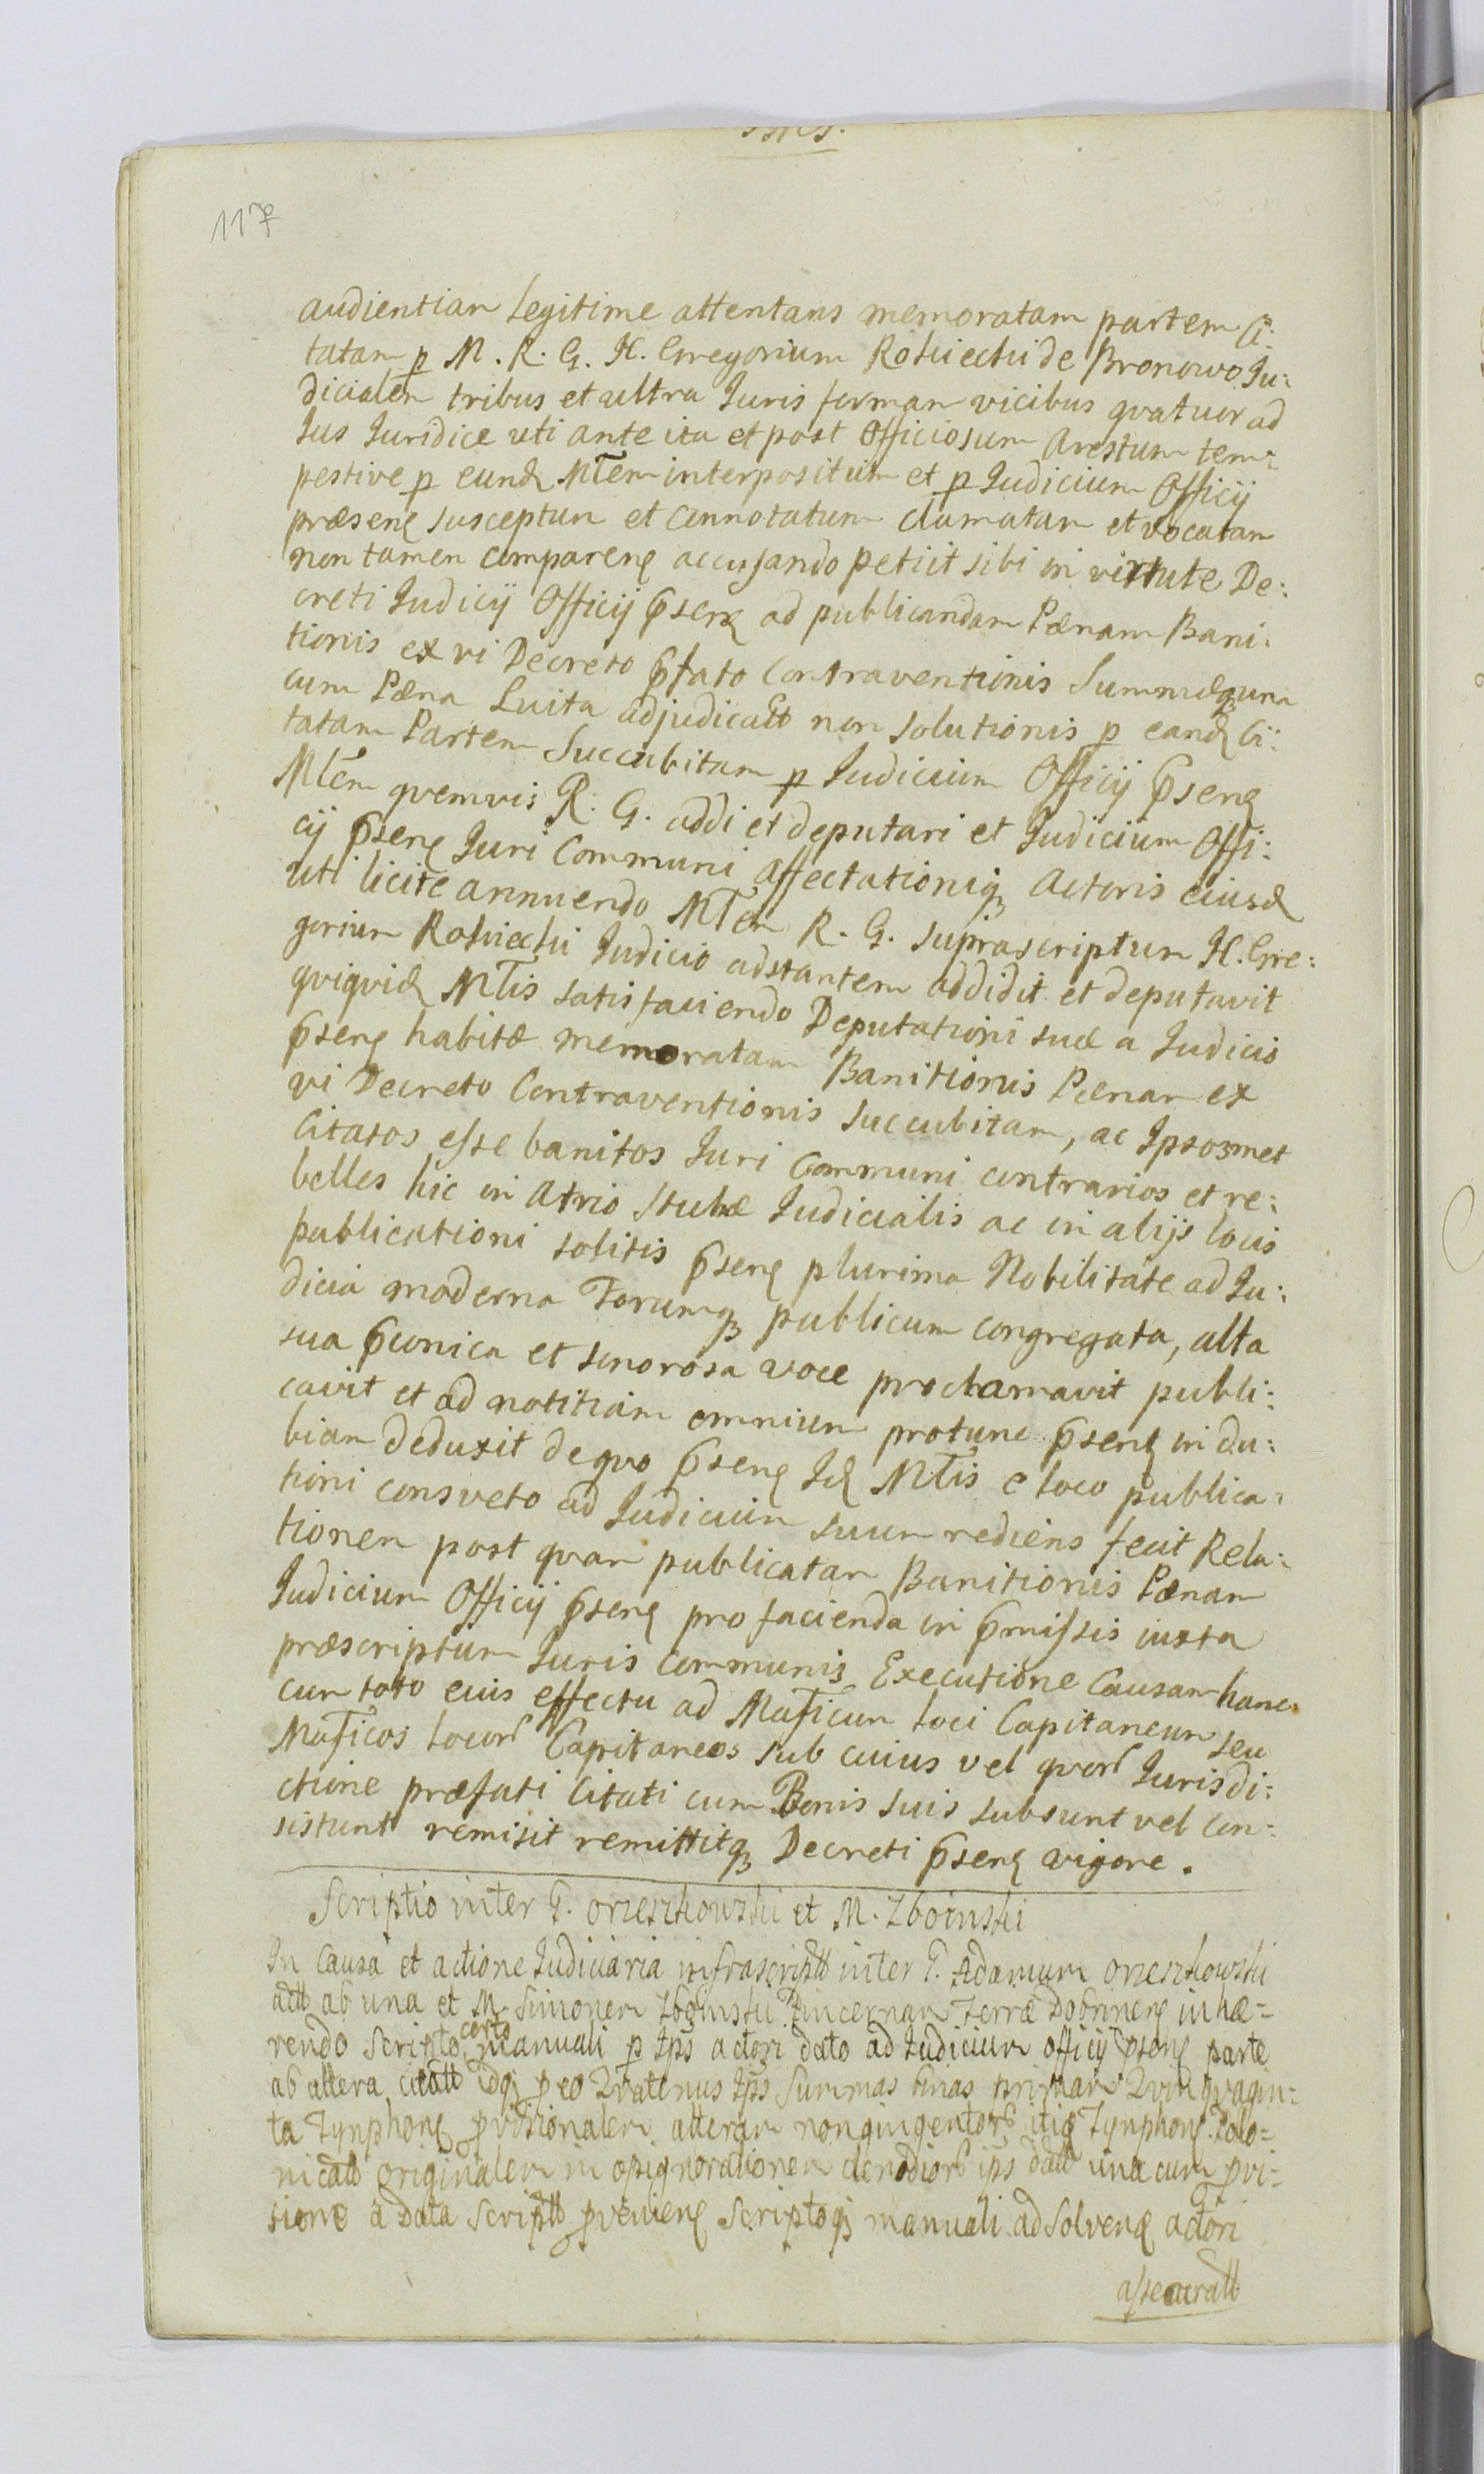 117
audientiam legitime attentans memoratam partem Ci:
tatam p M. R. G. H. Gregorium Rokiecki de Bronowo Ju:
dicialem tribus et ultra Juris formam vicibus qvatuor ad
Jus Juridice uti ante ita et post Officiosum Arestum tem:
pestive p eund Mtem interpositum et p Judicium Officij
præsens susceptum et connotatum clamatam et vocatam
non tamen comparen accusando petiit sibi in virtute De:
creti Judicij Officij psen ad publicandam Pænam Bani:
tionis ex vi Decreto pfato Contraventionis Summæq una
cum Pæna Luita adjudicatt non solutionis p eand Ci:
tatam Partem Succubitam p Judicium Officij psens
Mtem qvemvis R. G. addi et deputari et Judicium Offi:
cij psens Juri Communi Affectationiq Actoris eiusd
uti licite annuendo Mtem R. G. suprascriptum H. Gre:
gorium Rokiecki Judicio adstantem addidit et deputavit
qviqvid Mtis satisfaciendo Deputationi suæ a Judicio
psen habitæ memoratam Banitionis Pænam ex
vi Decreto Contraventionis succubitam, ac Ipsosmet
Citatos esse banitos Juri Communi contrarios et re:
belles hic in Atrio Stubæ Judicialis ac in alijs locis
publicationi solitis psen plurima Nobilitate ad Ju:
dicia moderna Forumq publicum congregata, alta
sua pconica et sonorosa voce proclamavit publi:
cavit et ad notitiam omnium protunc psen in du:
biam deduxit de qvo psens Id Mtis e loco publica:
tioni consveto ad Judicium suum rediens fecit Rela:
tionem post qvam publicatam Banitionis Pænam
Judicium Officij psens pro facienda in pmissis iuxta
præscriptum Juris Communis Executione Causam hanc
cum toto eius effectu ad Mäficum loci Capitaneum seu
Mäficos locor Capitaneos sub cuius vel qvor Jurisdi:
ctione præfati Citati cum Bonis suis subsunt vel con:
sistunt remisit remittitq Decreti psen vigore.
Scriptio inter G. Orzeszkowski et M. Zboinski
In Causa et actione Judiciaria infrascriptt inter G. Adamum Orzeszkowski
actt ab una et M. Simonem Zboinski Pincernam Terræ Dobrinen inhæ=
rendo Scripto certo manuali p Ips actori dato ad Judicium officij psens parte
ab altera citatt Idq p eo Qvatenus Ips Summas binas primam Qvinqvagin=
ta Tynphon pvisionalem alteram nongingentor itid Tynphon Polo=
nicatt originalem in opignorationem clenodior ips datt una cum pvi=
sione a Data Scriptt pvenien Scriptoq manuali ad Solvend actori
assecuratt